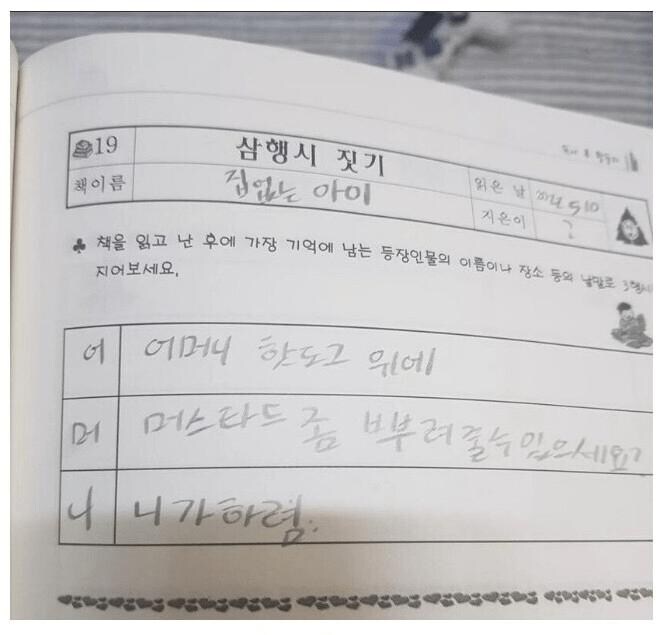 19
삼행시 짓기
책이름
집없는 아이
읽은 날
지은이
?
♣ 책을 읽고 난 후에 가장 기억에 남는 등장인물의 이름이나 장소 등의 낱말로 3행시
지어보세요.
어 어머니 핫도그 위에
머 머스타드 좀 뿌려줄수있으세요?
니 니가하렴.